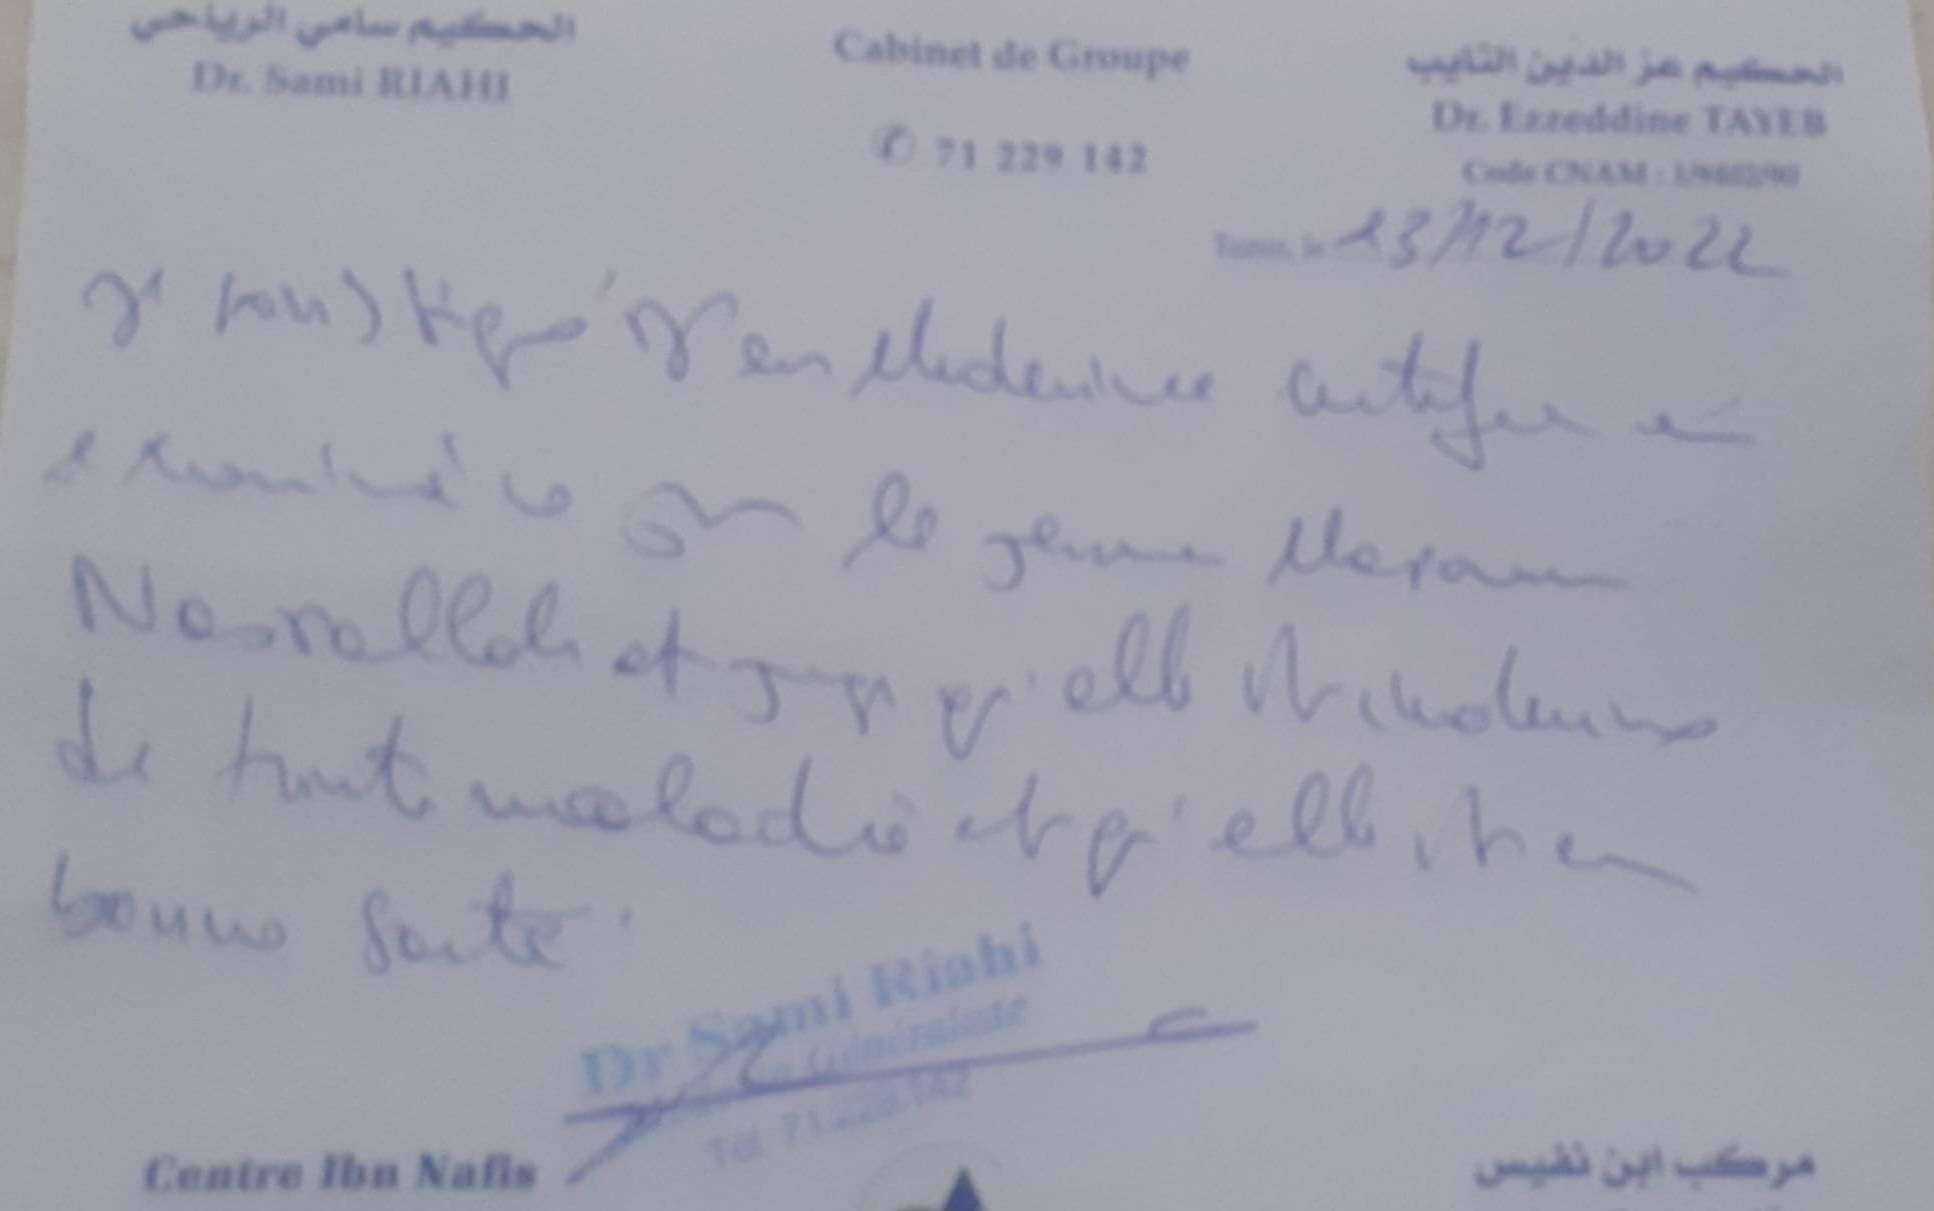 الحكيم سامي الرياحي
Dr. Sami RIAHI
Cabinet de Groupe
✆ 71 229 142
الحكيم عز الدين التايب
Dr. Ezzeddine TAYEB
Code CNAM :
Tunis, le 13/12/2022
Je soussigné Dr en Medecine certifie avoir
examiné ce jour la jeune
Nasrallah et juge qu'elle est indemne
de toute maladie et qu'elle est en
bonne santé.
Dr Sami Riahi
Généraliste
Tél 71.229.142
Centre Ibn Nafis
مركب ابن نفيس